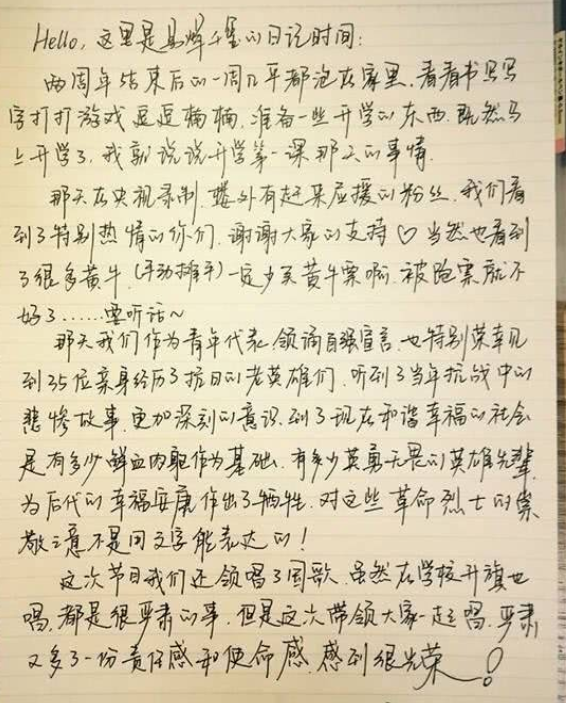 Hello,这里是易烊千玺的日记时间:
两周年结束后的一周几乎都泡在家里.看看书写写
字打打游戏逗逗楠楠.准备一些开学的东西.既然马
上开学了,我就说说开学第一课那天的事情.
那天在央视录制.楼外有赶来应援的粉丝.我们看
到了特别热情的你们.谢谢大家的支持♡当然也看到
了很多黄牛.(手动摊手)一定少买黄牛票啊.被骗票就不
好了......要听话~
那天我们作为青年代表.领诵自强宣言.也特别荣幸见
到35位亲身经历了抗日的老英雄们.听到了当年抗战中的
悲惨故事.更加深刻的意识到了现在和谐幸福的社会
是有多少鲜血肉躯作为基础.有多少英勇无畏的英雄先辈
为后代的幸福安康作出了牺牲.对这些革命烈士的崇
敬之意不是用文字能表达的!
这次节目我们还领唱了国歌.虽然在学校升旗也
唱,都是很严肃的事.但是这次带领大家一起唱.严肃
又多了一份责任感和使命感.感到很光荣!